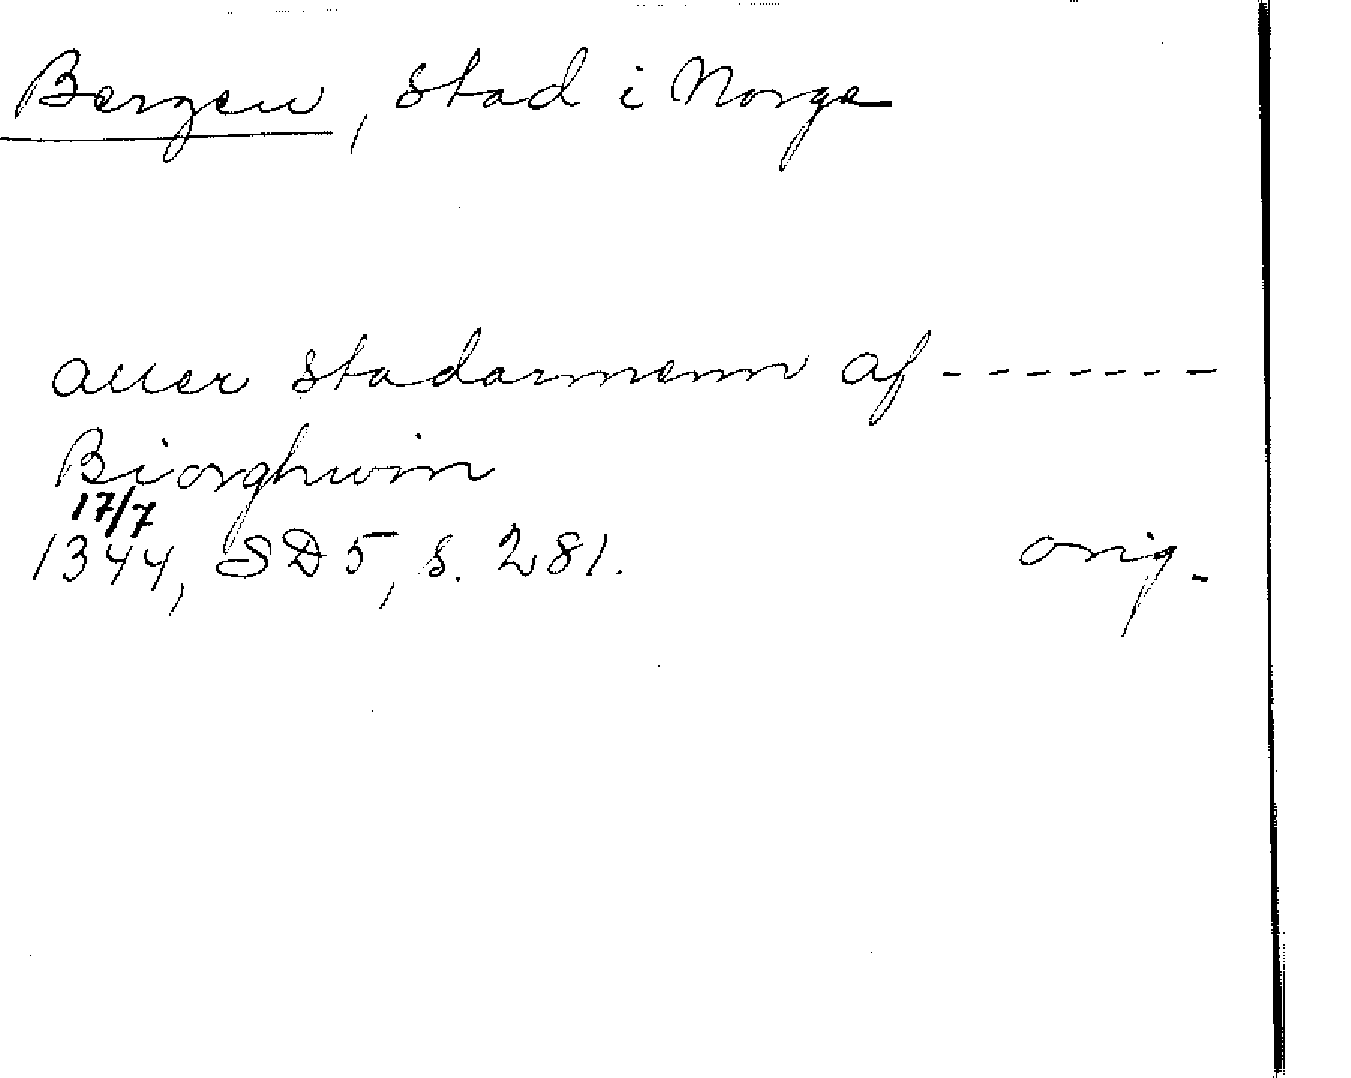 Bergen, stad i Norge
aller stadarmenn af -------
Biorghwin
17/7
1344, SD 5, s. 281. orig.